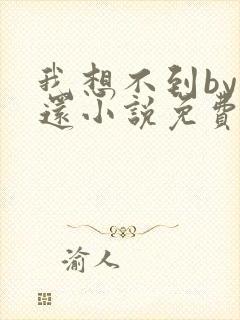 我想不到by
還小說免費
渝人